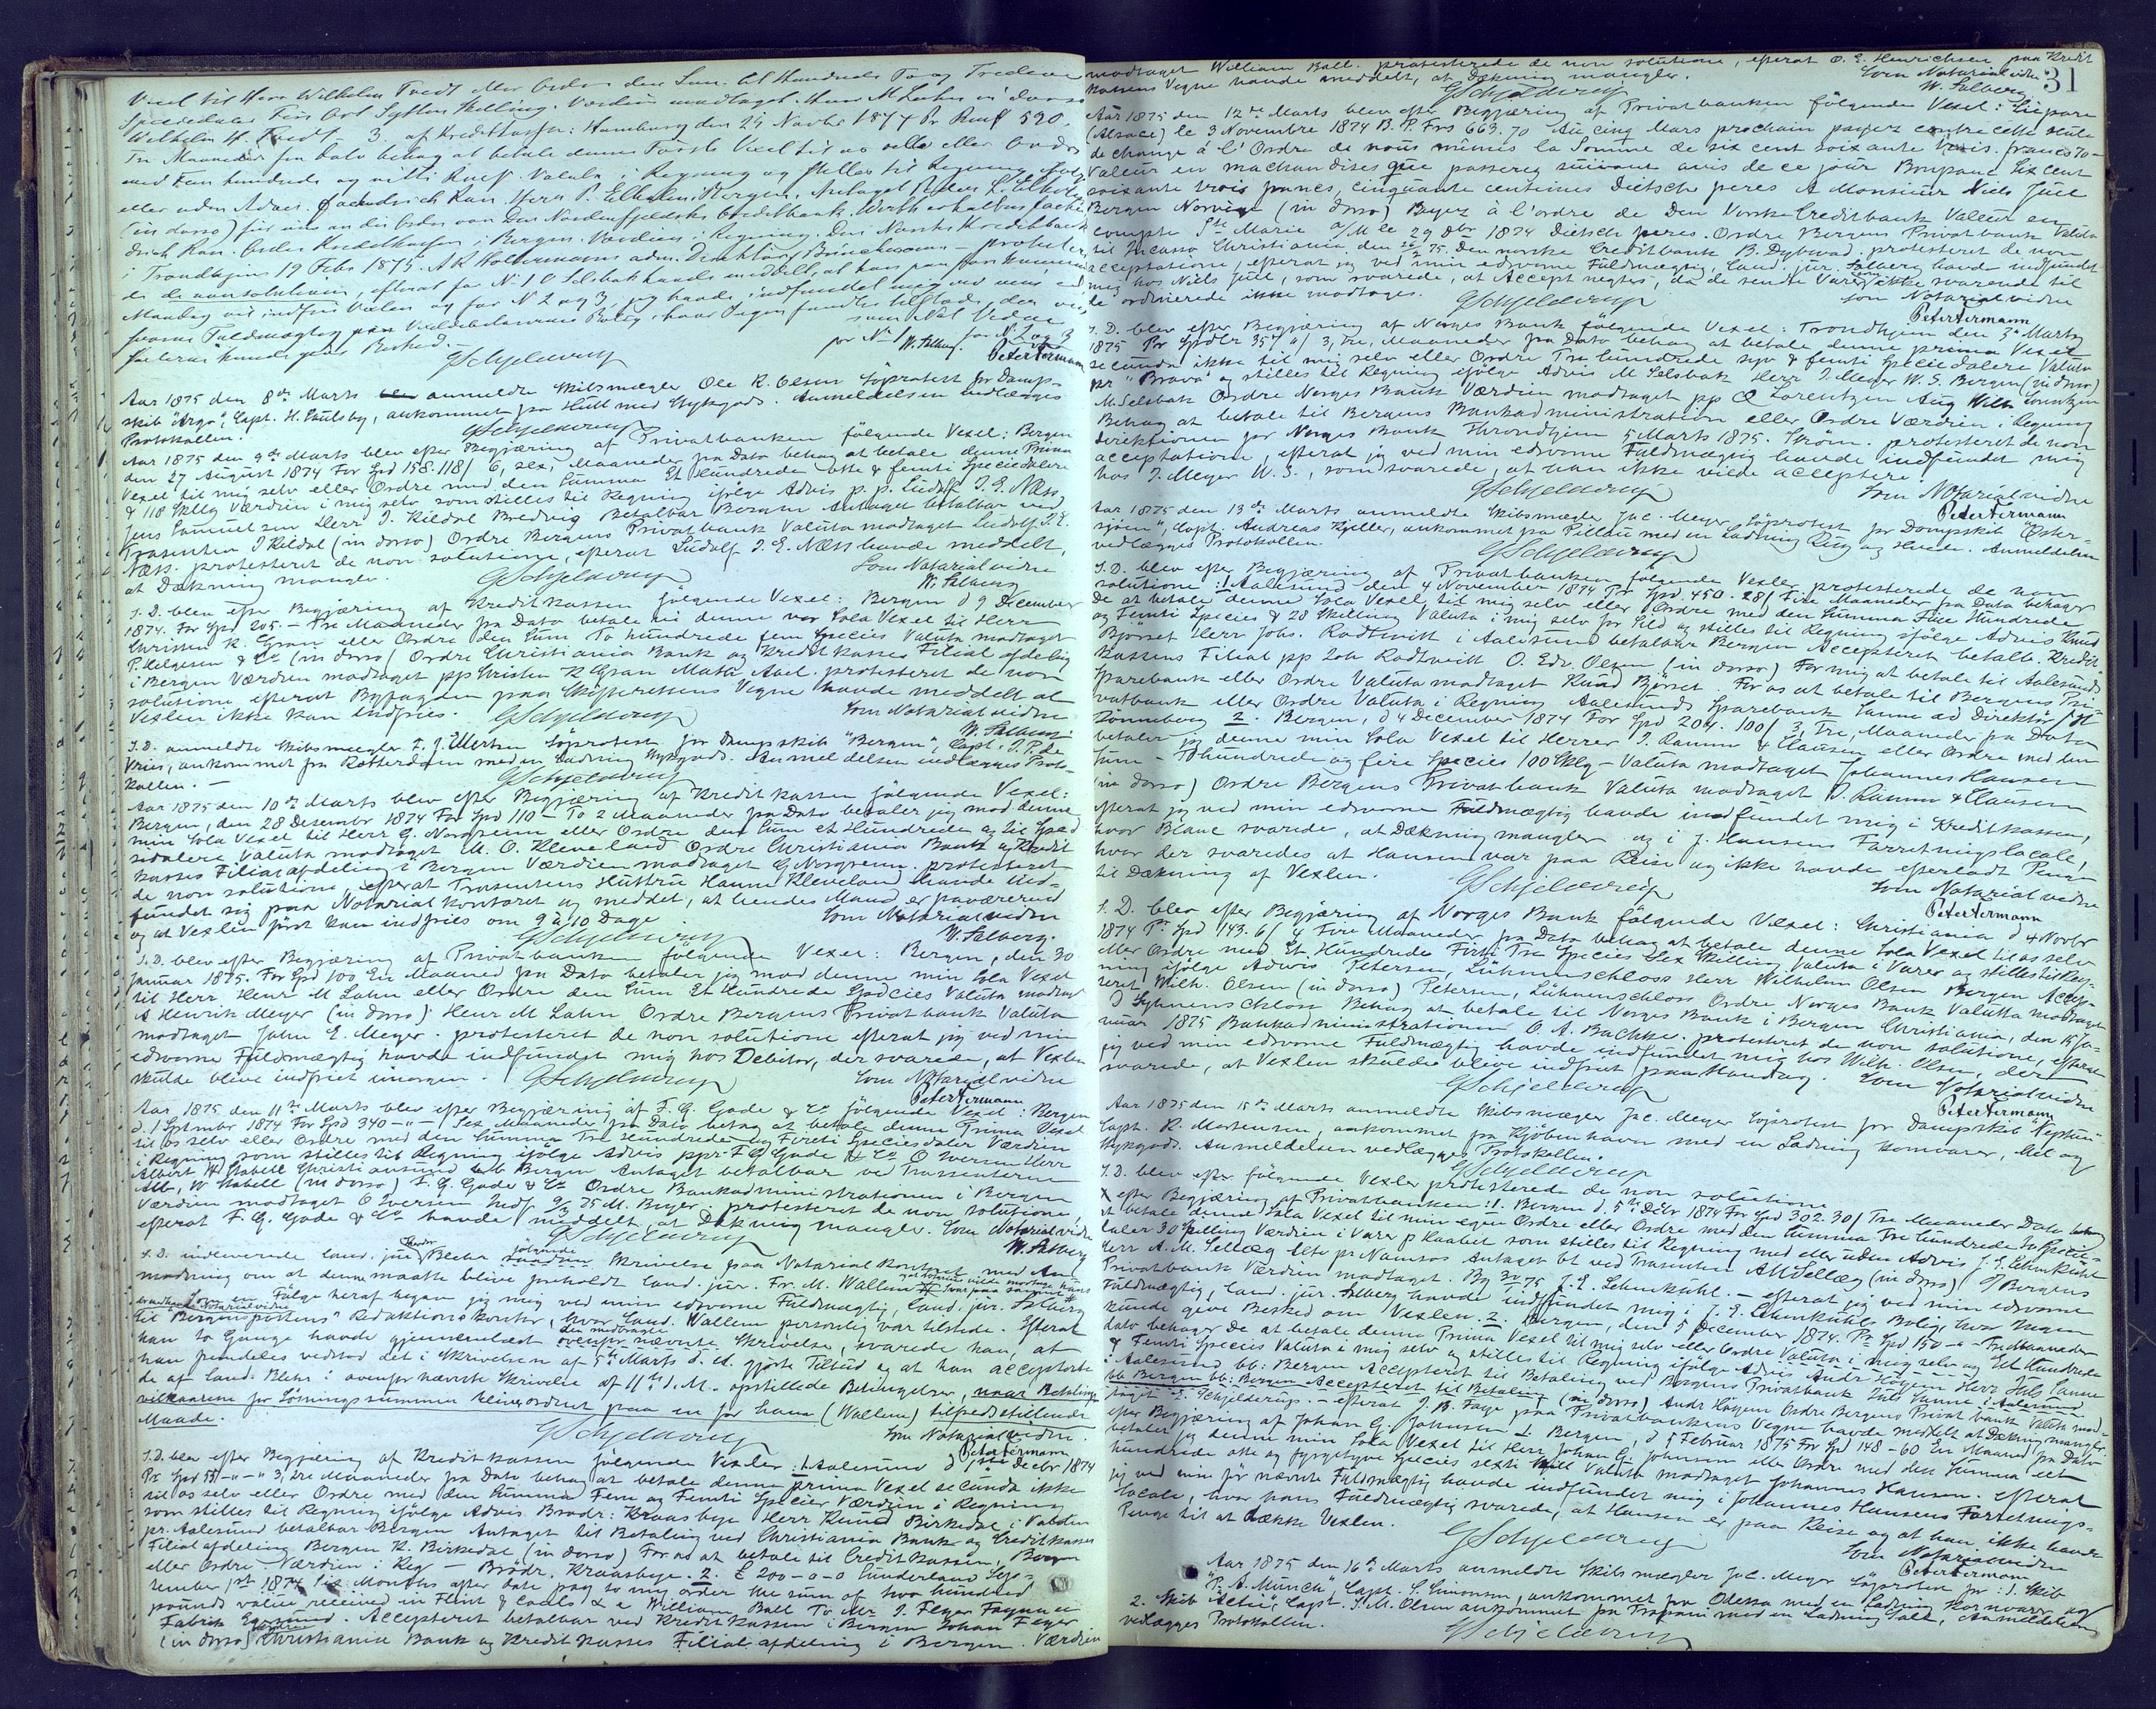 Vexel til Herr Wilhelm Tvedt eller Ordre den Sum. et Hundrede To og Tredeve
Speciedaler Fire Ort Sytten Skilling. Værdien modtaget.
Wilhelm H. Tvedt - 3 af Kreditkassen: Hamburg den 24 Novbr 1874 Pr Rmf 590.
Tre Maaneder fra dato behag at betale denne Første Vexel til os selv eller Ordre
med Fem hundrede og nitti Rmf. Valuta i Regning og stilles til Regning
eller uden Advis. Herr P. Elholm, Bergen. Antaget
(in dorso) für uns an die Ordre von Den Nordenfjeldske Creditbank. Werth erhalten
Ordre Kreditkassen i Bergen. Værdien i Regning. Den Norske Kreditbank
i Trondhjem 19 Febr 1875.
de non solutione, efterat for No 1 O Selsbak havde meddelt, at han paa
Mandag vil indfrie Vexlen og for No 2 og 3 jeg havde indfundet mig ved min ed-
svorne Fuldmægtig paa Vexeldebitorernes Bolig, hvor Ingen fandtes tilstede, der ved-
kommende kunde give Besked.
som Not Vidne
for No 1 W. Salberg. for No 2 og 3
GSchjelderup Peter Fermann
Aar 1875 den 8de Marts anmeldte Skibsmægler Ole R. Olsen Söprotest for Damp-
skib "Argo", Capt. H. Paulsby, ankommet fra Hull med Stykgods. Anmeldelsen vedlægges
Protokollen.
GSchjelderup
Aar 1875 den 9de Marts blev efter Begjæring af Privatbanken følgende Vexel: Bergen
den 27 August 1874 For Spd 158.118/ 6, sex, Maaneder fra Dato behag at betale denne Prima
Vexel til mig selv eller Ordre med den Summa Et Hundrede otte & femti Speciedalere
& 118 Skllg Værdien i mig selv som stilles til Regning ifølge Advis p. p. Ludolf J. E. Næss
Jens Samuelsen Herr J. Kildal Bredvig Betalbar Bergen Antaget betalbar ved
Trasenten J Kildal (in dorso) Ordre Bergens Privatbank Valuta modtaget Ludolf J. E
Næss. protesteret de non solutione, efterat Ludolf J. E. Næss havde meddelt,
at Dækning mangler. Som Notarialvidne
GSchjelderup W. Salberg
S. D. blev efter Begjæring af Kreditkassen følgende Vexel: Bergen d 9 December
1874. For Spd 205. — Tre Maaneder fra Dato betale vi denne vor Sola Vexel til Herr
Christen K. Gran eller Ordre den Sum To hundrede fem Species Valuta modtaget
P. Helgesen & Co (in dorso) Ordre Christiania Bank og Kreditkasses Filial afdeling
i Bergen Værdien modtaget pp Christen K Gran Math Abel. protesteret de non
solutione efterat Byfogden paa Skifterettens Vegne havde meddelt at
Vexlen ikke kan indfries. Som Notarialvidne
GSchjelderup W. Salberg
S. D. anmeldte Skibsmægler F. J. Mertens Söprotest for Dampskib "Bergen", Capt. J. P. de
Vries, ankommet fra Rotterdam med en Ladning Stykgods. Anmeldelsen vedlægges Proto-
kollen. —
GSchjelderup
Aar 1875 den 10de Marts blev efter Begjæring af Kreditkassen følgende Vexel:
Bergen, den 28 Desember 1874 For Spd 110 — To 2 Maaneder fra Dato betaler jeg mod denne
min Sola Vexel til Herr G. Norgrenn eller Ordre den Sum et Hundrede og ti Spe-
siedalere Valuta modtaget M. O. Kleveland Ordre Christiania Bank og Kredit-
kasses Filialafdeling i Bergen Værdien modtaget G Norgrenn. protesteret
de non solutione, efterat Trasentens Hustru Hanna Kleveland havde ind-
fundet sig paa Notarialkontoret og meddelt, at hendes Mand er fraværende
og at Vexlen først kan indfries om 9 à 10 Dage Som Notarialvidne
GSchjelderup W. Salberg.
S. D. blev efter Begjæring af Privatbanken følgende Vexel: Bergen, den 30
Januar 1875. For Spd 100 En Maaned fra Dato betaler jeg mod denne min Sola Vexel
til Herr Henr M Lahn eller Ordre den Sum Et Hundrede Spdcies Valuta modtaget
A Henrik Meyer (in dorso) Henr M Lahn Ordre Bergens Privatbank Valuta
modtaget John E. Meyer. protesteret de non solutione efterat jeg ved min
edsvorne Fuldmægtig havde indfundet mig hos Debitor, der svarede, at Vexlen
skulde blive indfriet imorgen. Som Notarialvidne
GSchjelderup Peter Fermann
Aar 1875 den 11te Marts blev efter Begjæring af F. G. Gade & Co følgende Vexel: Bergen
d. 1 Septmbr 1874 For Spd 340 — " — Sex Maaneder fra Dato behag at betale denne Prima Vexel
til os selv eller Ordre med den Summa Tre Hundrede og Fireti Speciesdaler Værdien
i Regning som stilles til Regning ifølge Advis ppr F G Gade & Co O Iversen Herr
Albert W Kabell Christiansund bb Bergen Antaget betalbar ved Trassenterne
Alb. W Kabell (in dorso) F. G. Gade & Co Ordre Bankadministrationen i Bergen
Værdien modtaget O Iversen Indf 9/3 75 M. Beyer. protesteret de non solutione,
efterat F. G. Gade & Co havde meddelt, at Dækning mangler. Som Notarialvidne
GSchjelderup W. Salberg
S. D. indleverede Cand. jur. Theodor Blehr følgende Skrivelse paa Notarialkontoret med An-
modning om at denne maatte blive foreholdt Cand. jur. Fr. M. Wallem
Som en Følge heraf begav jeg mig ved min edsvorne Fuldmægtig, Cand. jur. Salberg
til Bergenspostens Redaktionskontor, hvor Cand. Wallem personlig var tilstede. Efterat
han to Gange havde gjennemlæst den medbragte ovenfor nævnte Skrivelse, svarede han, at
han fremdeles vedstod det i Skrivelsen af 5te Marts d. A. gjorte Tilbud og at han acceptorte
de af Cand. Blehr i ovenfor nævnte Skrivelse af 11te d. M. opstillede Betingelser, naar Betalings-
vilkaarene for Løsningssummen bliver ordnet paa en for ham (Wallem) tilfredsstillende
Maade. Som Notarialvidne.
GSchjelderup Peter Fermann
S. D. blev efter Begjæring af Kreditkassen følgende Vexler: 1. Aalesund d 1ste Decbr 1874
Pr Spd 55 — " — " 3, tre Maaneder fra Dato behag at betale denne prima Vexel secunda ikke
til os selv eller Ordre med den Summa Fem og Femti Species Værdien i Regning
som stilles til Regning ifølge Advis Brødr: Kraasbye Herr Knud Birkedal i Volden
pr. Aalesund betalbar Bergen Antaget til Betaling ved Christiania Bank og Creditkasses
Filialafdeling Bergen K. Birkedal (in dorso) For os at betale til Creditkassen, Bergen
eller Ordre Værdien i Reg — Brödr. Kraasbye. 2. £ 200-0-0 Sunderland Sep-
tember 1st 1874 Six Months after date pay to my order the sum of two hundred
pounds value received in Flint & Coals &c William Ball To Mr J. Feyer Fayance
Fabrik Egersund. Accepteret betalbar ved Kreditkassen i Bergen Johan Feyer
(in dorso) Christiania Bank og Kreditkasses Filialafdeling i Bergen. Værdien
31
modtaget William Ball. protesterede de non solutione, efterat O. E. Henrichsen paa Kredit
kassens Vegne havde meddelt, at Dækning mangler. Som Notarialvidne
GSchjelderup W. Salberg
Aar 1875 den 12te Marts blev efter Begjæring af Privatbanken følgende Vexel: Liepvre
(Alsace) le 3 Novembre 1874 B. P. Frs 663.70 Au cinq Mars prochain payez contre cette seule
de change à l'Ordre de nous mêmes la Somme de six cent soixante trois francs 70 —
Valeur en machandises que passerez suivant avis de ce jour Bonpour Six cent
soixante trois francs, cinquante centimes Dietsch freres A Monsieur Niels Juel
Bergen Norvège (in dorso) Payez à l'ordre de Den Norske Creditbank Valeur en
compte Ste Marie a/M le 29 Dbr 1874 Dietsch freres. Ordre Bergens Privatbank Valuta
til Incasso Christiania den 26/2 75. Den norske Creditbank B. Dybwad, protesteret de non
acceptatione, efterat jeg ved min edsvorne Fuldmægtig, Cand. jur. Salberg havde indfundet
mig hos Niels Juel, som svarede, at Accept negtes, da de sendte Varer, som ikke svarende til
de ordinerede ikke modtages. Som Notarialvidne
GSchjelderup Peter Fermann
S. D. blev efter Begjæring af Norges Bank følgende Vexel: Trondhjem den 3de Marts
1875 Pr Spdlr 357 "/ 3, Tre, Maaneder fra Dato behag at betale denne prima Vexel
secunda ikke til mig selv eller Ordre Tre hundrede syv & femti Speciedalere Valuta
pr "Brava" og stilles til Regning ifølge Advis M Selsbak Herr J. Meyer W. S. Bergen (in dorso)
M. Selsbak Ordre Norges Bank Værdien modtaget pp C Lorentzen Aug Wilh Lorntzen
Behag at betale til Bergens Bankadministration eller Ordre Værdien i Regning
Direktionen for Norges Bank Throndhjem 5 Marts 1875. Strøm. protesteret de non
acceptatione, efterat jeg ved min edsvorne Fuldmægtig havde indfundet mig
hos J. Meyer W. S., som svarede, at han ikke vilde acceptere. Som Notarialvidne
GSchjelderup Peter Fermann
Aar 1875 den 13de Marts anmeldte Skibsmægler Jac. Meyer Söprotest for Dampskib "Öster-
sjöen", Capt. Andreas Kjeller, ankommet fra Pillau med en Ladning Rug og Hvede. Anmeldelsen
vedlægges Protokollen.
GSchjelderup
S. D. blev efter Begjæring af Privatbanken følgende Vexler protesterede de non
solutione: 1. Aalesund den 4 November 1874 Pr Spd 450.28/ Fire Maaneder fra Dato behager
De at betale denne Sola Vexel til mig selv eller Ordre med den Summa Fire Hundrede
og Femti Species & 28 Skilling Valuta i mig selv for Sild og stilles til Regning ifølge Advis Knud
Bjørset Herr Johs. Rødtveitt i Aalesund betalbar Bergen Accepteret betalb. Kredit-
kassens Filial pp Joh Rødtveitt O. Edv. Olsen (in dorso) For mig at betale til Aalesunds
Sparebank eller Ordre Valuta modtaget Knud Bjørset. For os at betale til Bergens Pri-
vatbank eller Ordre Valuta i Regning Aalesunds Sparebank Sanne ad Direktör / H
Rønneberg 2. Bergen, d 4 December 1874 For Spd 204.100/ 3, Tre, Maaneder fra Dato
betaler jeg denne min Sola Vexel til Herrer J. Ramm & Clausen eller Ordre med den
Sum — Tohundrede og fire Species 100 Sklg — Valuta modtaget Johannes Hansen
(in dorso) Ordre Bergens Privatbank Valuta modtaget J. Ramm & Clausen
efterat jeg ved min edsvorne Fuldmægtig havde indfundet mig i Kreditkassen,
hvor Blanc svarede, at Dækning mangler og i J. Hansens Forretningslocale,
hvor der svaredes at Hansen var paa Reise og ikke havde efterladt Penge
til Dækning af Vexlen. Som Notarialvidne
GSchjelderup Peter Fermann
S. D. blev efter Begjæring af Norges Bank følgende Vexel: Christiania d 4 Novbr
1874 Pr Spd 143.6/ 4 Fire Maaneder fra Dato behag at betale denne Sola Vexel til os selv
eller Ordre med Et Hundrede Firti Tre Species Sex Skilling Valuta i Varer og stilles til Reg-
ning ifølge Advis Petersen, Lühmenschloss Herr Wilhelm Olsen Bergen Accep-
teret Wilh. Olsen (in dorso) Petersen, Lühnenschloss Ordre Norges Bank Valutta modtaget
D Lyhnenschloss Behag at betale til Norges Bank i Bergen Christiania, den 15 Ja-
nuar 1875 Bankadministrationen O. A. Bachke. protesteret de non solutione, efterat
jeg ved min edsvorne Fuldmægtig havde indfundet mig hos Wilh. Olsen, der
svarede, at Vexlen skulde blive indfriet paa Mandag. Som Notarialvidne
GSchjelderup Peter Fermann
Aar 1875 den 15de Marts anmeldte Skibsmægler Jac. Meyer Söprotest for Dampskib "Neptun"
Capt. R. Mortensen, ankommet fra Kjöbenhavn med en Ladning Kornvarer, Mel og
Stykgods. Anmeldelsen vedlægges Protokollen.
GSchjelderup
S. D. blev efter følgende Vexler protesterede de non solutione
X efter Begjæring af Privatbanken: 1. Bergen d. 5te Dcbr 1874 For Spd 302.30/ Tre Maaneder Dato behag
at betale denne Sola Vexel til min egen Ordre eller Ordre med den Summa Tre hundrede to Specie-
daler 30 Skilling Værdien i Varer p Kaabet som stilles til Regning med eller uden Advis J. E. Lehmkuhl
Herr A. M. Sellæg Elte pr Namsos Antaget bt ved Trasenten A M Sellæg (in dorso) T/ Bergens
Privatbank Værdien modtaget. Bg 30/1 75 J. E. Lehmkuhl. — efterat jeg ved min edsvorne
Fuldmægtig, Cand. jur. Salberg havde indfundet mig i J. E. Lehmkuhls Bolig, hvor Ingen
kunde give Besked om Vexlen. 2 Bergen, den 5 December 1874. Pr Spd 150 — " — Tre Maaneder
dato behager De at betale denne Prima Vexel til mig selv eller Ordre Valuta i mig selv og Et Hundrede
& Femti Species Valuta i mig selv og stilles til Regning ifølge Advis Andr Høgen Herr Juls Sanne
i Aalesund bb: Bergen Accepteret til Betaling ved Bergens Privatbank Juls Sanne i Aalesund
bb Bergen bb: Bergen Accepteret til Betaling (in dorso) Andr Høgen Ordre Bergens Privatbank Valuta mod-
taget E. Schjelderup. — efterat J. B. Faye paa Privatbankens Vegne havde meddelt at Dækning mangler.
efter Begjæring af Johan G. Johnsen 1 Bergen, d 5 Februar 1875 For Spd 148-60 En Maaned fra Dato
betaler jeg denne min Sola Vexel til Herr Johan G. Johnsen eller Ordre med den Summa ett
hundrede otte og fyrgetyve Species sexti Skill Valuta modtaget Johannes Hansen. efterat
jeg ved min før nævnte Fuldmægtig havde indfundet mig i Johannes Hansens Forretnings-
Locale, hvor hans Fuldmægtig svarede, at Hansen er paa Reise og at han ikke havde
Penge til at dække Vexlen. Som Notarialvidne
GSchjelderup Peter Fermann
Aar 1875 den 16de Marts anmeldte Skibsmægler Jac. Meyer Söprotest for: 1. Skib
"P. A. Munch", Capt. S. Simonsen, ankommet fra Odessa med en Ladning Kornvarer og
2. Skib "Activ", Capt. J. M. Olsen ankommet fra Trapani med en Ladning Salt, Anmeldelsen
vedlægges Protokollen.
GSchjelderup